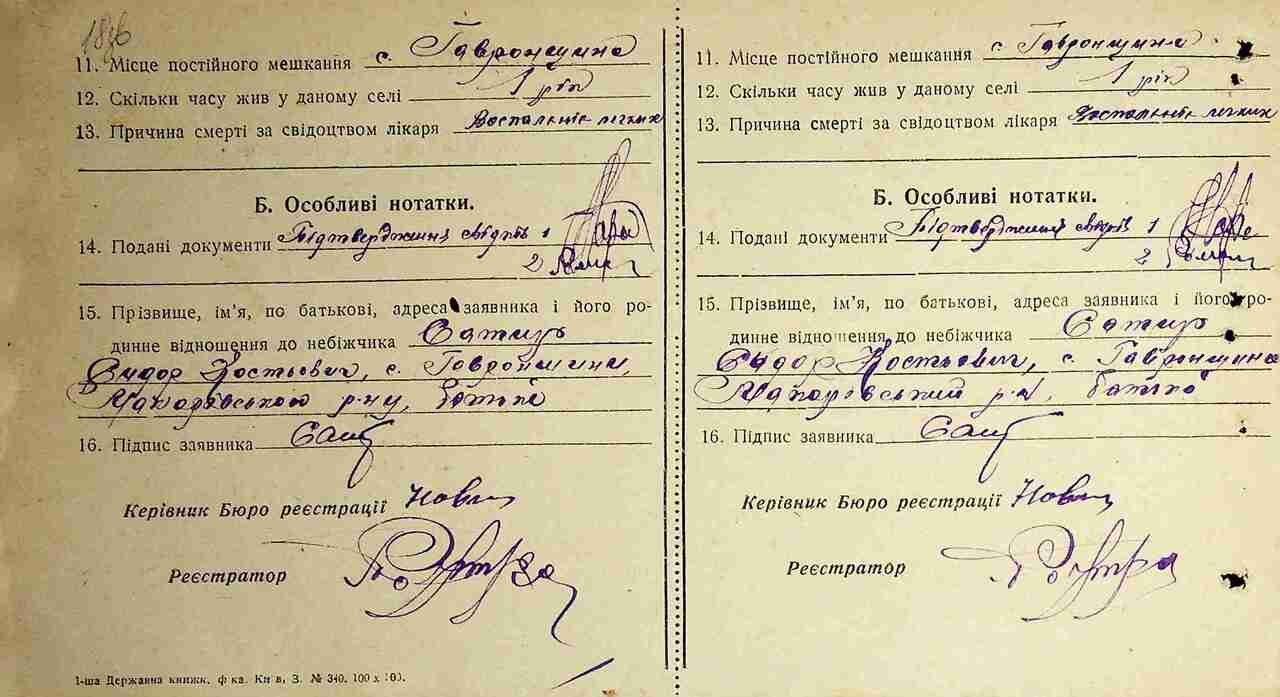 1876
11. Місце постійного мешкання с. Гавронщина
12. Скільки часу жив у даному селі 1 рік
13. Причина смерті за свідоцтвом лікаря Воспаление легких
Б. Особливі нотатки.
14. Подані документи Підтвердження свідків 1
2
15. Прізвище, ім'я, по батькові, адреса заявника і його ро-
динне відношення до небіжчика Сатир
Сидор Костьович, с. Гавронщина,
Макарівського р-ну, батько
16. Підпис заявника Сат
Керівник Бюро реєстрації
Реєстратор
1-ша Державна книжк. ф-ка. Київ, З. № 340. 100 x 100.
11. Місце постійного мешкання с. Гавронщина
12. Скільки часу жив у даному селі 1 рік
13. Причина смерті за свідоцтвом лікаря Воспаление легких
Б. Особливі нотатки.
14. Подані документи Підтвердження свідків 1
2
15. Прізвище, ім'я, по батькові, адреса заявника і його ро-
динне відношення до небіжчика Сатир
Сидор Костьович, с. Гавронщина
Макаровський р-н, батько
16. Підпис заявника Сат
Керівник Бюро реєстрації
Реєстратор